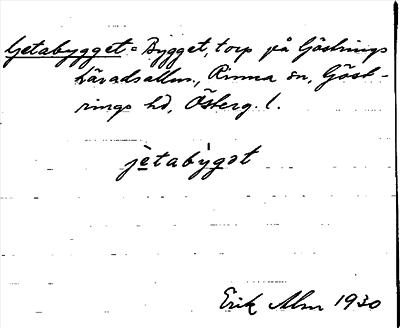 Getabygget = Bygget, torp på Göstrings
häradsallm., Rinna sn, Göst-
rings hd, Österg. l.
jètabỳgət
Erik Alm 1930